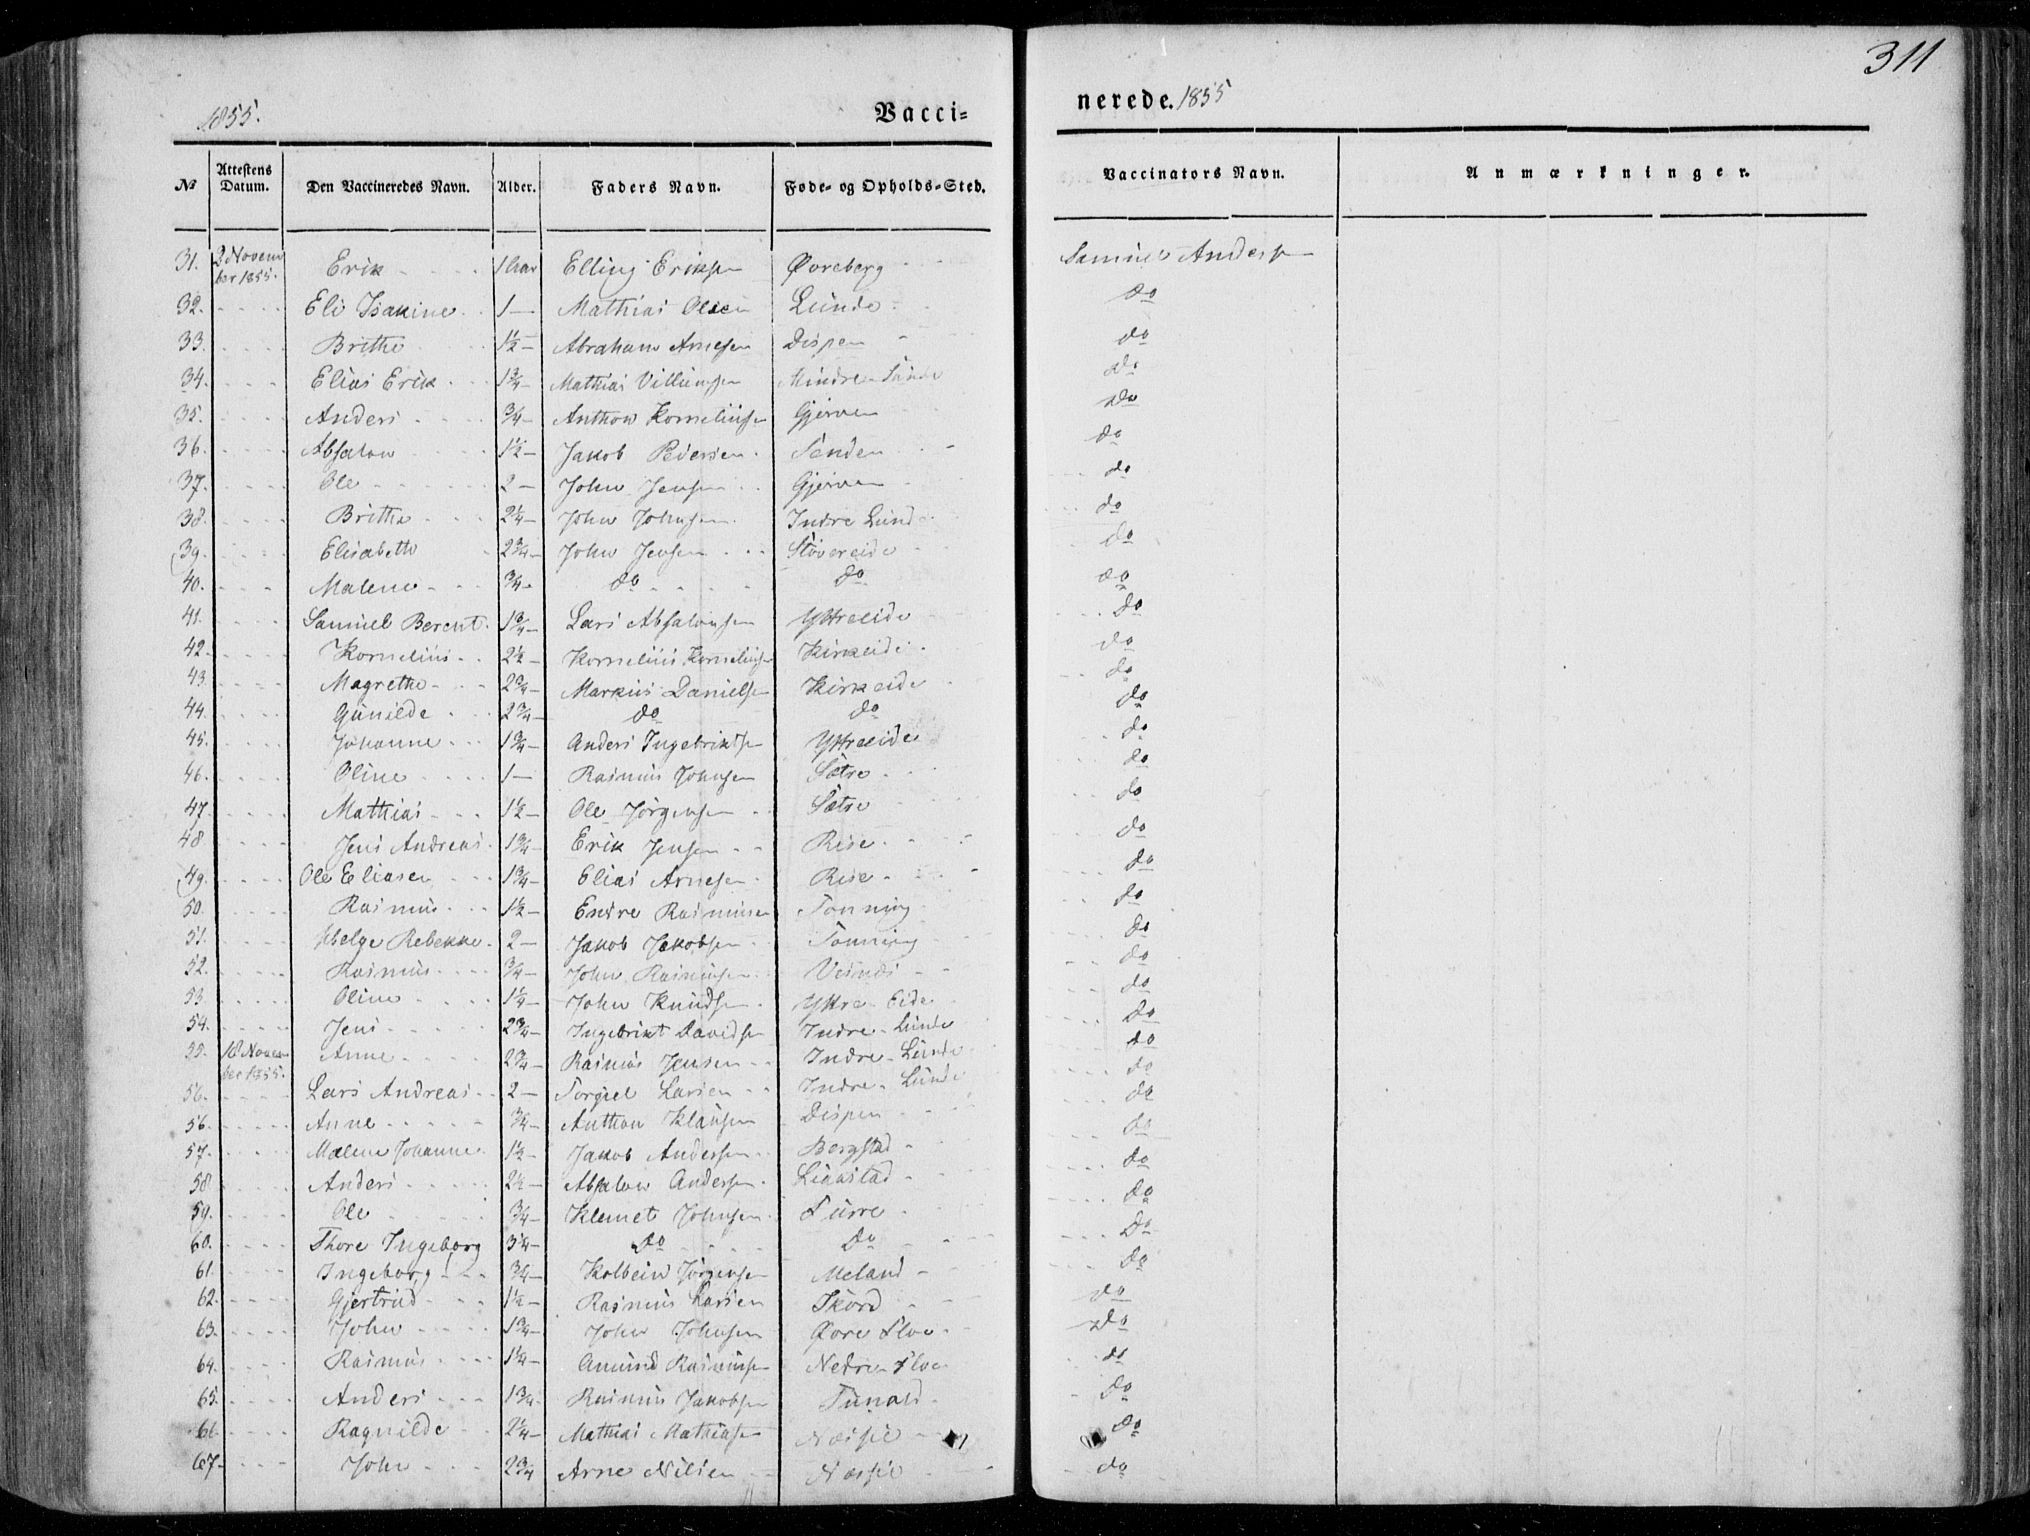 311
1855. Vacci-
nerede. 1855
No Attestens Datum. Den Vaccineredes Navn. Alder. Faders Navn. Føde- og Opholds-Sted. Vaccinators Navn. Anmærkninger.
31. 2 November 1855. Erik 1 Aar Elling Eriksen Øvreberg Samuel Andersen
32. Eli Isakine 1 — Mathias Olsen Lunde do
33. Brithe 1½ — Abraham Arnesen Dispen do
34. Elias Erik 1¾ — Mathias Villumsen Mindre-Sunde do
35. Anders ¾ — Anthon Korneliusen Gjerven do
36. Absalon 1½ — Jakob Pedersen Sanden do
37. Ole 2 — John Jensen Gjerven do
38. Brithe 2¼ — John Johnsen Indre Lunde do
39. Elisabeth 2¾ — John Jensen Støvereide do
40. Malene ¾ — do do do
41. Samuel Berent 1¾ — Lars Absalonsen Yttreeide do
42. Kornelius 2½ — Kornelius Korneliusen Kirkeide do
43. Magrethe 2¾ — Markus Danielsen Kirkeide do
44. Gunilde 2¾ — do do do
45. Johanne 1¾ — Anders Ingebriktsen Yttreeide do
46. Oline 1 — Rasmus Johnsen Sætre do
47. Mathias 1½ — Ole Jørgensen Sætre do
48. Jens Andreas 1¾ — Erik Jensen Rise do
49. Ole Eliasen 1¾ — Elias Arnesen Rise do
50. Rasmus 1½ — Endre Rasmusen Tonning do
51. Helge Rebekke 2 — Jakob Jakobsen Tonning do
52. Rasmus ¾ — John Rasmusen Visnæs do
53. Oline 1¼ — John Knudsen Yttre Eide do
54. Jens 2¾ — Ingebrikt Davidsen Indre-Lunde do
55. 18 November 1855. Anne 2¾ — Rasmus Jensen Indre-Lunde do
56. Lars Andreas 2 — Torgiel Larsen Indre-Lunde do
56. Anne ¾ — Anthon Klausen Dispen do
57. Malene Johanne 1½ — Jakob Andersen Bergstad do
58 Anders 2½ — Absalon Andersen Liaastad do
59. Ole ¾ — Klemet Johnsen Furre do
60. Thore Ingeborg 3¼ — Do Do Do
61. Ingeborg ¾ — Kolbein Jørgensen Meland do
62. Gjertrud 1½ — Rasmus Larsen Skord do
63. John 1¾ — John Johnsen Øvre Floe do
64. Rasmus 1¼ — Amund Rasmusen Nedre-Floe do
65. Anders 1¾ Rasmus Jakobsen Tunold do
66 Ragnilde 2¼ — Mathias Mathiasen Næssie do
67. John 2¾ Arne Nilsen Næssie do